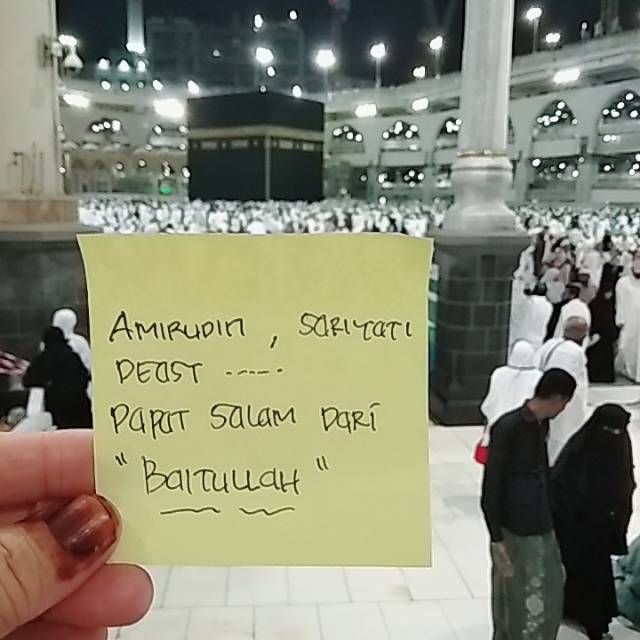 AMIRUDIN, SARIYATI
DEAST -----
DAPAT SALAM DARI
"BAITULLAH"